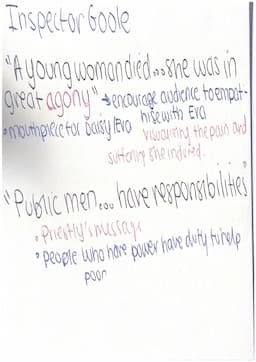 Inspector Goole
"A young woman died... she was in
great agony" → encourage audience to empat-
• mouthpiece for Daisy/Eva hise with Eva
the pain and
suffering she endured.
"Public men... have responsibilities"
• Priestly's message
• People who have power have duty to help
poor